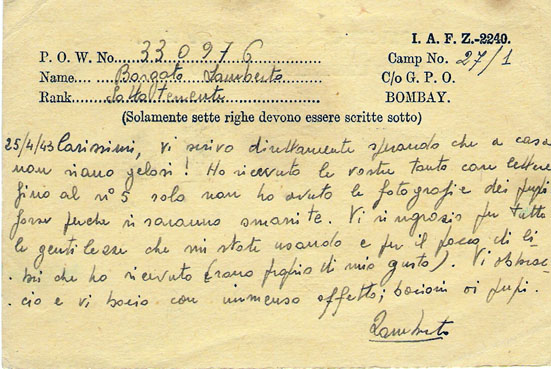 I. A. F. Z.-2240.
P. O. W. No. 330976 Camp No. 27/1
Name Borgato Lamberto C/o G. P. O.
Rank Sottotenente BOMBAY.
(Solamente sette righe devono essere scritte sotto)
25/4/43 Carissimi, vi scrivo direttamente sperando che a casa
non siano gelosi! Ho ricevuto le vostre tanto care lettere
fino al n° 5 solo non ho avuto le fotografie dei pupi
forse perchè si saranno smarrite. Vi ringrazio per tutte
le gentilezze che mi state usando e per il pacco di li-
bri che ho ricevuto (sono proprio di mio gusto). Vi abbrac-
cio e vi bacio con immenso affetto; bacioni ai pupi.
Lamberto